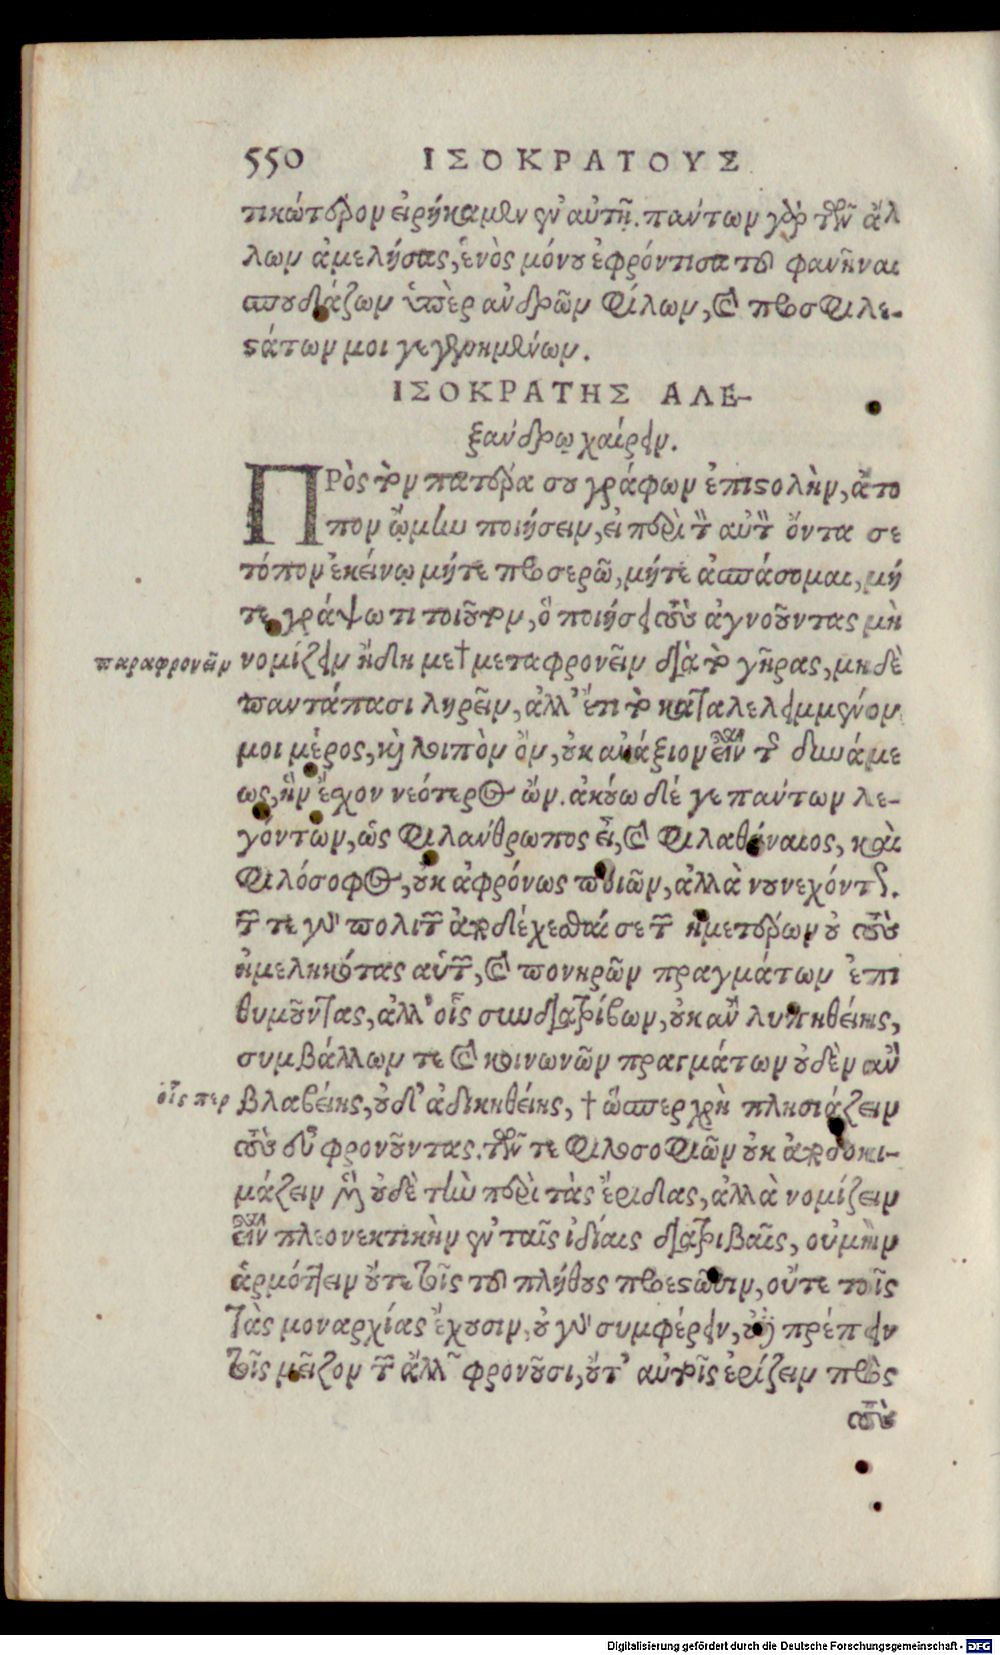 550 ΙΣΟΚΡΑΤΟΥΣ
τικώτερον εἰρήκαμεν ἐν αὐτῇ. πάντων γὰρ τῶν ἄλ
λων ἀμελήσας, ἑνὸς μόνου ἐφρόντισα τοῦ φανῆναι
σπουδάζων ὑπὲρ ἀνδρῶν φίλων, καὶ προσφιλε-
στάτων μοι γεγενημένων.
ΙΣΟΚΡΑΤΗΣ ΑΛΕ-
ξάνδρῳ χαίρειν.
ΠΡὸς τὸν πατέρα σου γράφων ἐπιστολὴν, ἄτο
πον ᾤμην ποιήσειν, εἰ περὶ τὸν αὐτὸν ὄντα σε
τόπον ἐκείνῳ μήτε προσερῶ, μήτε ἀσπάσομαι, μή
τε γράψω τι τοιοῦτον, ὃ ποιήσει τοὺς ἀγνοοῦντας μὴ
παραφρονεῖν νομίζειν ἤδη με† μεταφρονεῖν διὰ τὸ γῆρας, μηδὲ
παντάπασι ληρεῖν, ἀλλ' ἔτι τὸ καταλελειμμένον
μοι μέρος, καὶ λοιπὸν ὂν, οὐκ ἀνάξιον εἶναι τῆς δυνάμε
ως, ἣν ἔχον νεότερος ὤν. ἀκούω δέ γε πάντων λε-
γόντων, ὡς φιλάνθρωπος εἶ, καὶ φιλαθήναιος, καὶ
φιλόσοφος, οὐκ ἀφρόνως ποιῶν, ἀλλὰ νουνεχόντως.
τῶν τε γὰρ πολιτῶν ἀποδέχεσθαί σε τῶν ἡμετέρων οὐ τοὺς
ἠμεληκότας αὑτῶν, καὶ πονηρῶν πραγμάτων ἐπι
θυμοῦντας, ἀλλ' οἷς συνδιατρίβων, οὐκ ἂν λυπηθείης,
συμβάλλων τε καὶ κοινωνῶν πραγμάτων οὐδὲν ἂν
οἷς περ βλαβείης, οὐδ' ἀδικηθείης, † ὥσπερ χρὴ πλησιάζειν
τοὺς εὖ φρονοῦντας. τῶν τε φιλοσοφιῶν οὐκ ἀποδοκι-
μάζειν μὲν οὐδὲ τὴν περὶ τὰς ἔριδας, ἀλλὰ νομίζειν
εἶναι πλεονεκτικὴν ἐν ταῖς ἰδίαις διατριβαῖς, οὐ μὴν
ἁρμόττειν οὔτε τοῖς τοῦ πλήθους προεστῶσιν, οὔτε τοῖς
τὰς μοναρχίας ἔχουσιν, οὐ γὰρ συμφέρειν, οὐδὲ πρέπειν
τοῖς μεῖζον τῶν ἄλλων φρονοῦσι, οὔτ' αὐτοῖς ἐρίζειν πρὸς
τοὺς
Digitalisierung gefördert durch die Deutsche Forschungsgemeinschaft - DFG